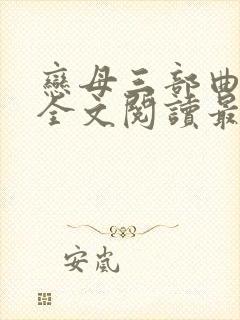 戀母三部曲
全文閱讀最
安嵐